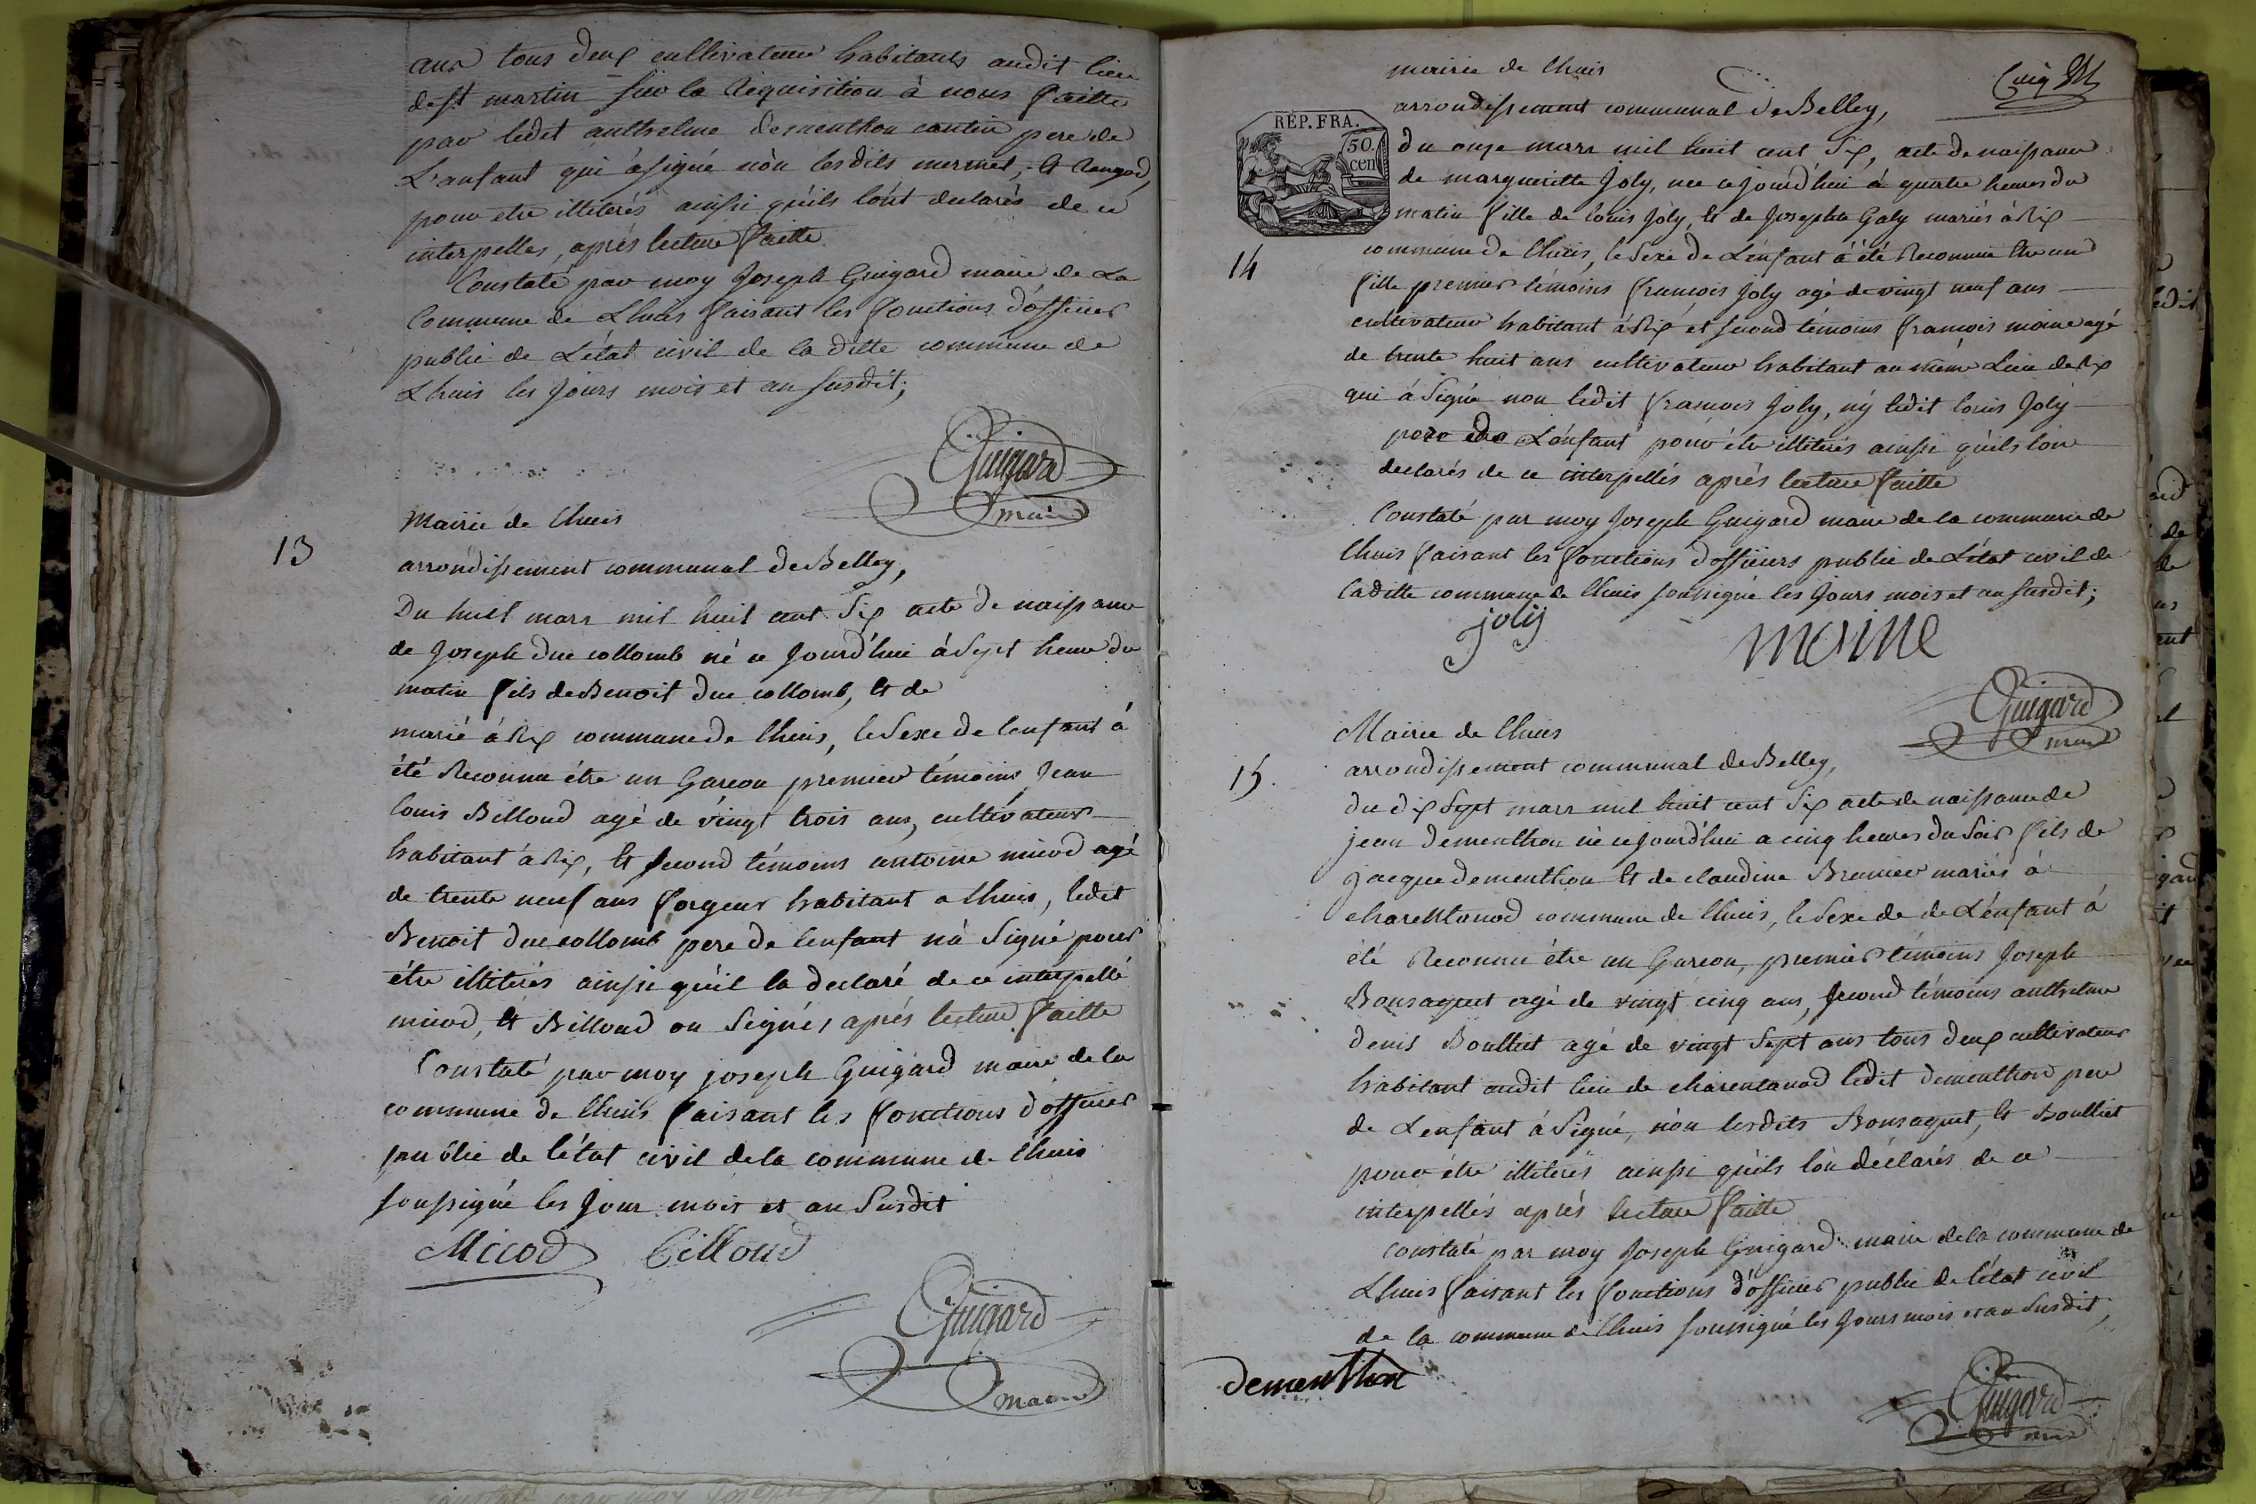 ans tous deux cultivateur habitants audit lieu
de St martin sur la Requisition à nous faitte
par ledit anthelme dementhon cantin pere de
L'anfant qui à signé nòn lesdits mermet, et Rougod,
pour etre illiterés ainsi qu'ils lo'nt declarés de ce
interpelles, aprés lecture faitte
Constaté par moy Joseph Guigard maire de La
Commune de Lhuis faisant les fonctions d'officier
public de L'état civil de la ditte commune de
Lhuis les Jours mois et an susdit;
Guigard
maire
13
Mairie de lhuis
arrondissement communal de Belley,
Du huit mars mil huit cent six acte de naissance
de Joseph duc collomb né ce Jourd'hui à Sept heure du
matin fils de Benoit duc collomb, et de
marié à Rix commune de lhuis, le Sexe de lenfant à
été Reconnu étre un Garcon premier témoins Jean
louis Billoud agé de vingt trois ans, cultivateur
habitant à Rix, et second témoins antoine micod agé
de trente neuf ans forgeur habitant a lhuis, ledit
Benoit duc collomb pere de lenfant nà Signé pour
étre illiterés ainsi qu'il la declaré de ce interpellé
micod, et Billoud on Signés aprés lecture faitte
Constaté par moy joseph Guigard maire de la
commune de lhuis faisant les fonctions d'officier
public de l'état civil de la commune de lhuis
soussigné les Jour mois et an Susdit
Micod Billoud
Guigard
maire
mairie de lhuis
arrondissement communal de Belley,
RÉP. FRA.
50.
cen
14
du onze mars mil huit cent Six, acte de naissance
de margueritte Joly, nee ce jourd'hui à quatre heures du
matin fille de louis Joly, et de Josephte Galy mariés à Rix
commune de lhuis, le Sexe de L'énfant à été Reconnue étre une
fille premier témoins francois Joly agé de vingt neuf ans
cultivateur habitant à Rix et second témoins francois moine agé
de trente huit ans cultivateur habitant au méme Lieu de Rix
qui à Signé non ledit francois Joly, ny ledit louis Joly
pere de L'énfant pour étre illiterés ainsi qu'ils lon
declarés de ce interpellés aprés lecture faitte
Constaté par moy Joseph Guigard maire de la commune de
lhuis faisant les fonctions d'officiers public de L'état civil de
Laditte commune de lhuis soussigné les Jours mois et an susdit;
joly moine
Guigard
maire
15
Mairie de lhuis
arrondissement communal de Belley,
du dix Sept mars mil huit cent Six acte de naissance de
jean dementhon né ce jourd'hui a cinq heures du Soir fils de
Jacque dementhon et de claudine Brunier mariés à
commune de lhuis, le Sexe de de L'énfant à
été Reconnu étre un Garcon, premier témoins Joseph
Bonsaquet agé de vingt cinq ans, second témoins anthelme
denis Boulliet agé de vingt Sept ans tous deux cultivateur
habitant audit lieu de charentanod ledit dementhon pere
de Lenfant à Signé, nòn lesdits Bonsaquet, et Boulliet
pour étre illiterés ainsi qu'ils lòn déclarés de ce
interpellés aprés lecture faitte
Constaté par moy Joseph Guigard maire de la commune de
Lhuis faisant les fonctions d'officier public de l'état civil
de la commune de lhuis soussigné les Jours mois et an Susdit,
dementhon
Guigard
maire